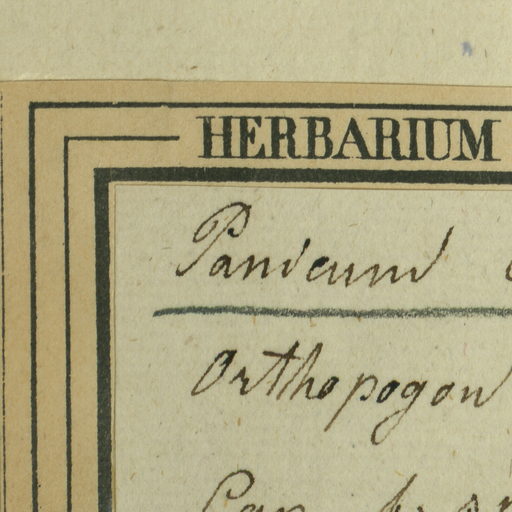 HERBARIUM
Panicum
Orthopogon